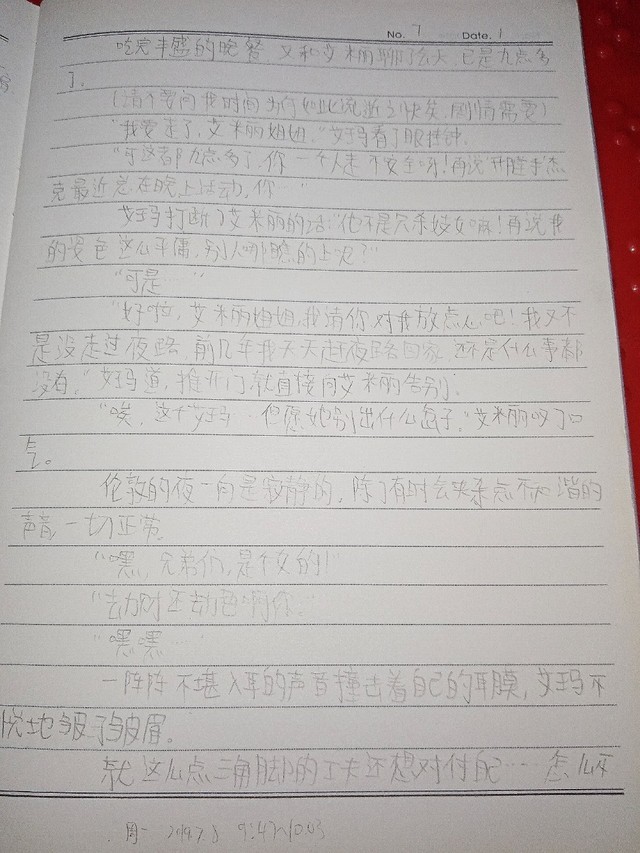 No. 7 Date. 1
吃完丰盛的晚餐,又和艾米丽聊了会天,已是九点多
了。
(请不要问我时间为何如此流逝之快矣,剧情需要)
“我要走了,艾米丽姐姐。”艾玛看了眼时钟。
“可这都九点多了,你一个人走不安全呀!再说开膛手杰
克最近总在晚上活动,你…”
艾玛打断了艾米丽的话:“他不是只杀妓女嘛!再说我
的姿色这么平庸,别人哪瞧的上呢?”
“可是……”
“好啦,艾米丽姐姐,我请你对我放点心吧!我又不
是没走过夜路,前几年我天天赶夜路回家,还是什么事都
没有。”艾玛道,推开门就直接向艾米丽告别。
“唉,这个艾玛…但愿她别出什么岔子。”艾米丽叹了口
气。
伦敦的夜一向是寂静的,除了有时会夹杂点不和谐的
声音,一切正常。
“嘿,兄弟们,是个女的!”
“去劫财还劫色啊你。”
“嘿嘿……”
一阵阵不堪入耳的声音撞击着自己的耳膜,艾玛不
悦地皱了皱眉。
就这么点三角脚的工夫还想对付自己…怎么不
周一 2019.7.8 9:47~10:03